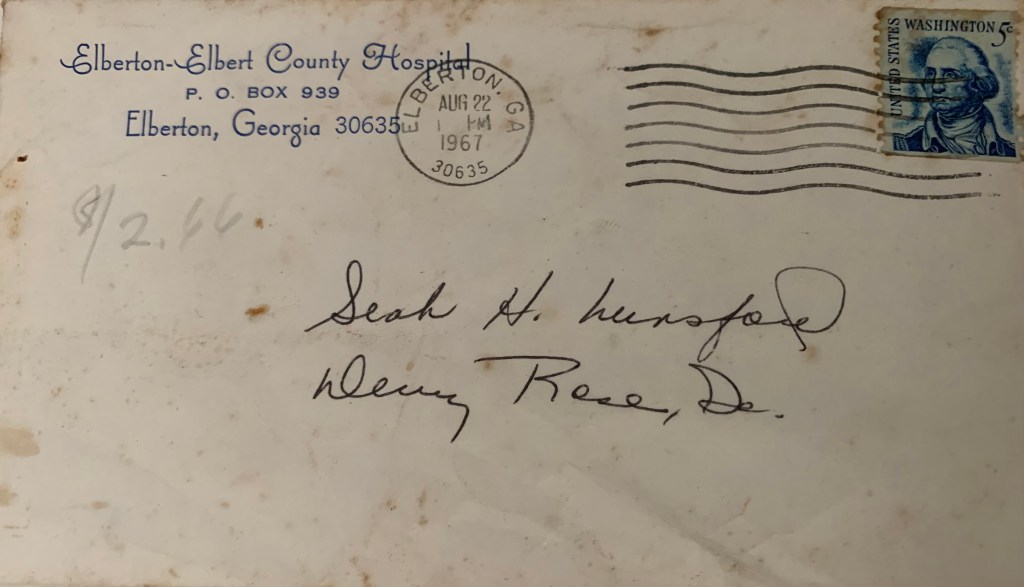 Elberton-Elbert County Hospital
P. O. BOX 939
Elberton, Georgia 30635
ELBERTON, GA
AUG 22
1 PM
1967
30635
UNITED STATES
WASHINGTON 5¢
$12.66
H. Lunsford
Dewy Rose, Ga.